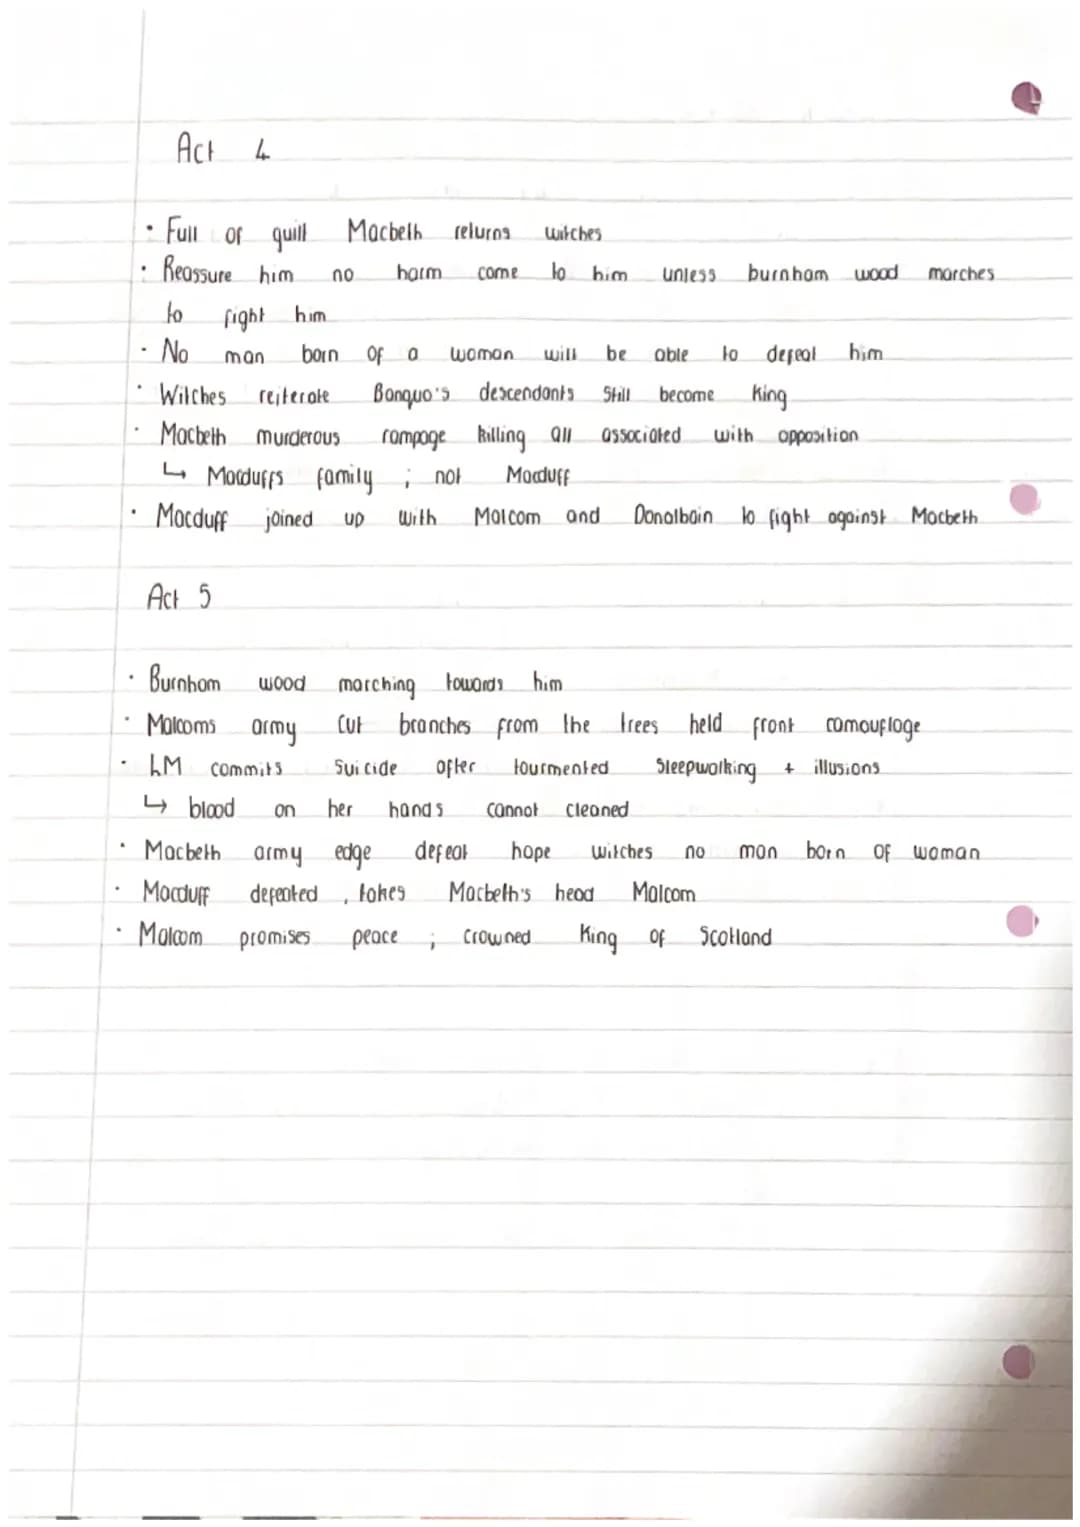 Act 4
· Full of guilt Macbeth returns witches
· Reassure him no harm come to him unless burnham wood marches
to fight him
· No man born of a woman will be able to defeat him
· Witches reiterate Banquo's descendants still become King
· Macbeth murderous rampage killing all associated with opposition
↳ Macduffs family ; not Macduff
· Macduff joined up with Malcom and Donalbain to fight against Macbeth
Act 5
· Burnham wood marching towards him
· Malcoms army cut branches from the trees held front camouflage
· LM commits suicide after tourmented sleepwalking + illusions
↳ blood on her hands cannot cleaned
· Macbeth army edge defeat hope witches no man born of woman
· Macduff defeated , takes Macbeth's head Malcom
· Malcom promises peace ; crowned King of Scotland